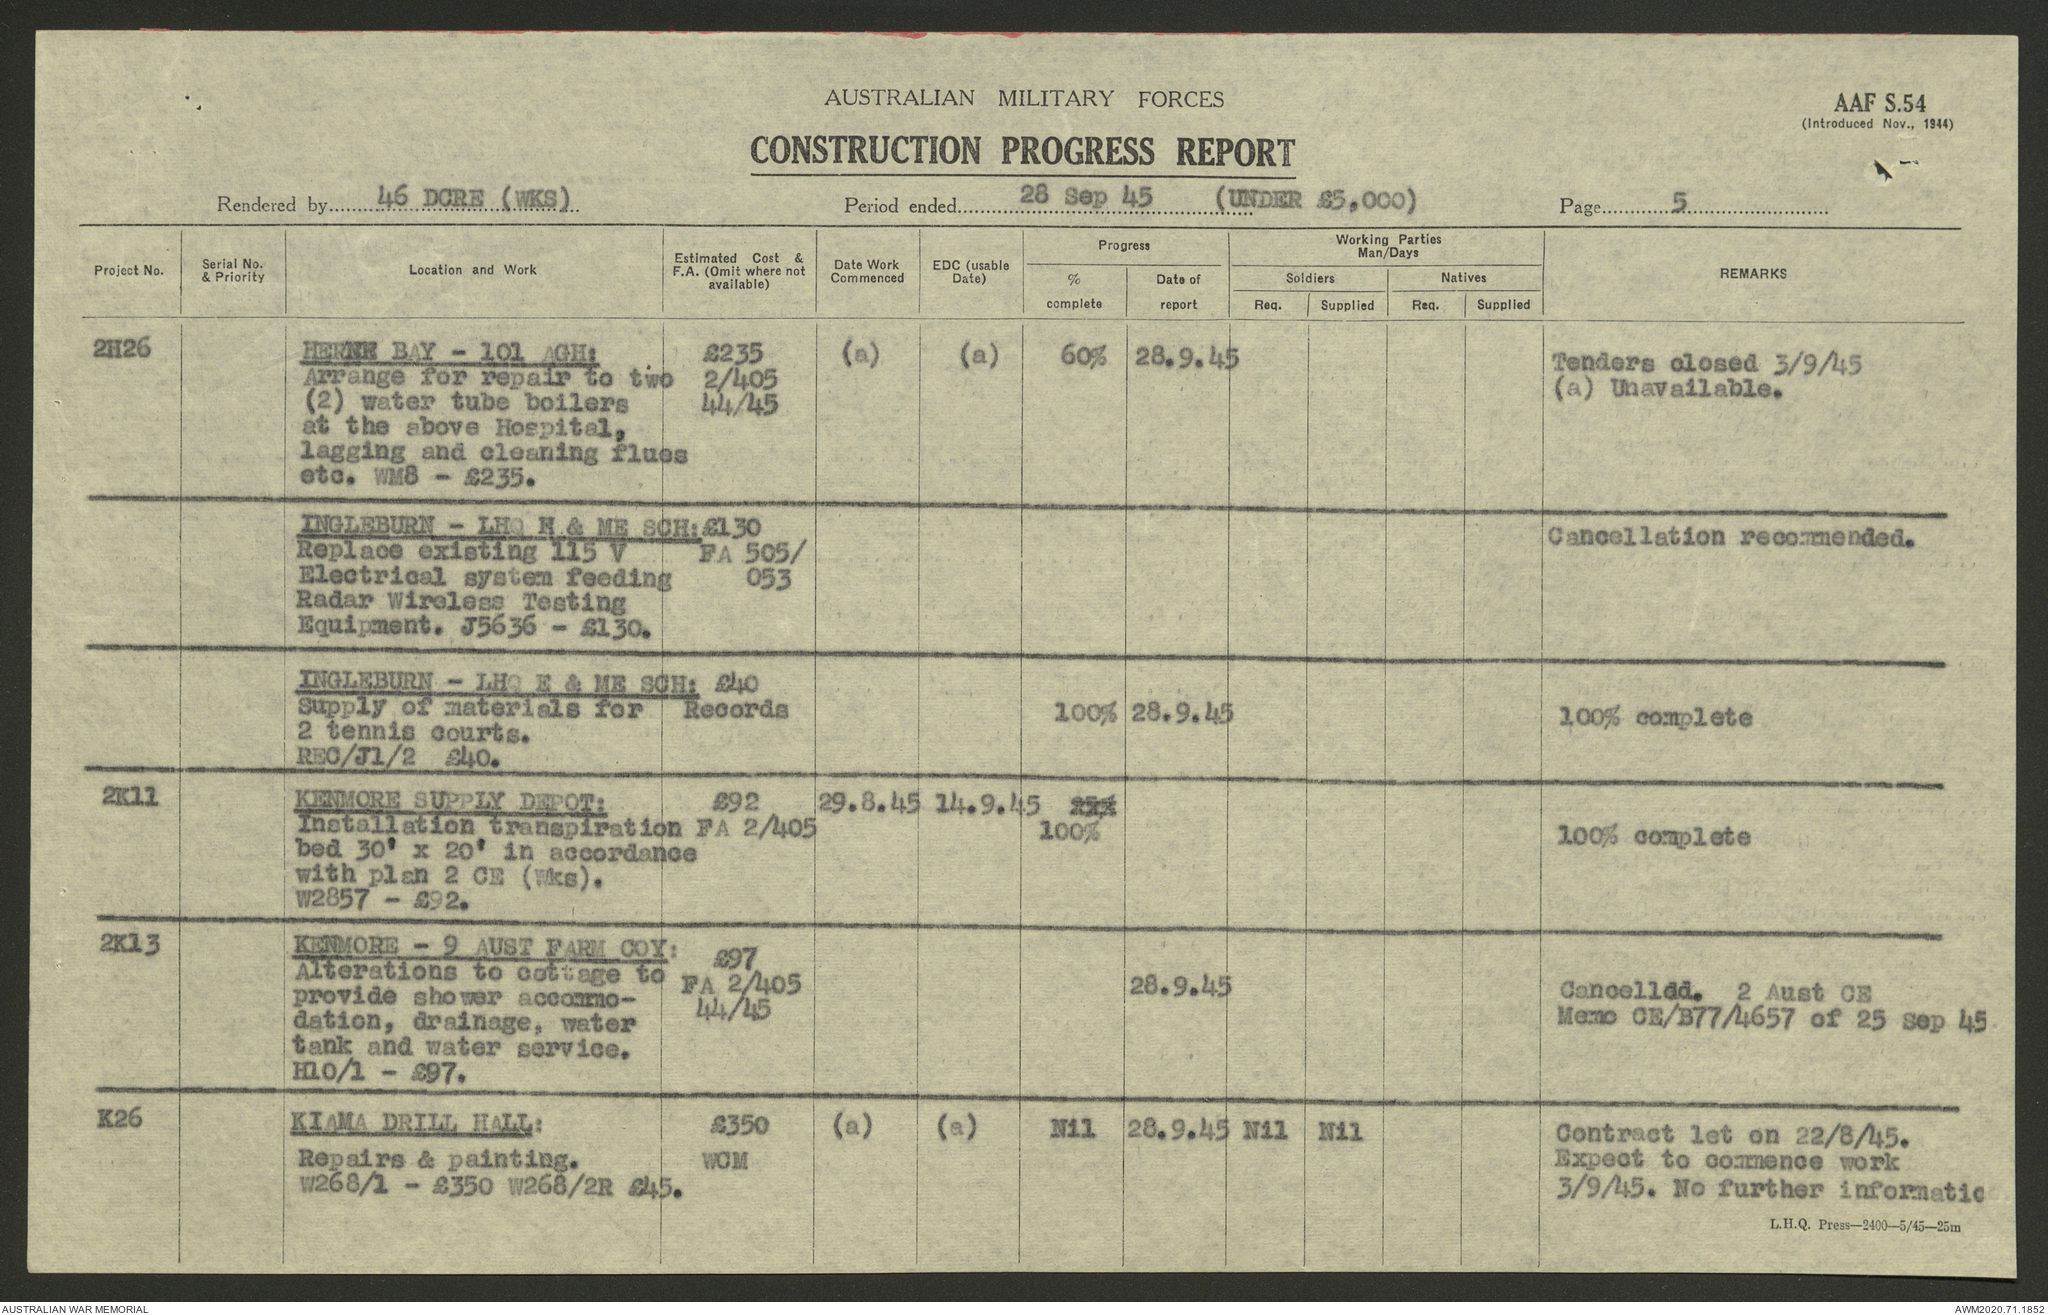 AUSTRALIAN MILITARY FORCES
AAF S.54
(Introduced Nov., 1944)
CONSTRUCTION PROGRESS REPORT
Rendered by 46 DCRE (WKS) Period ended 28 Sep 45 (UNDER £5,000) Page 5
Project No. Serial No. & Priority Location and Work Estimated Cost & F.A. (Omit where not available) Date Work Commenced EDC (usable Date) Progress % complete Date of report Working Parties Man/Days Soldiers Req. Supplied Natives Req. Supplied REMARKS
2H26 HERNE BAY - 101 AGH: £235 (a) (a) 60% 28.9.45 Tenders closed 3/9/45
Arrange for repair to two 2/405 (a) Unavailable.
(2) water tube boilers 44/45
at the above Hospital,
lagging and cleaning flues
etc. WM8 - £235.
INGLEBURN - LHQ E & ME SCH: £130 Cancellation recommended.
Replace existing 115 V FA 505/
Electrical system feeding 053
Radar Wireless Testing
Equipment. J5636 - £130.
INGLEBURN - LHQ E & ME SCH: £40
Supply of materials for Records 100% 28.9.45 100% complete
2 tennis courts.
REC/J1/2 £40.
2K11 KENMORE SUPPLY DEPOT: £92 29.8.45 14.9.45
Installation transpiration FA 2/405 100% 100% complete
bed 30' x 20' in accordance
with plan 2 CE (Wks).
W2857 - £92.
2K13 KENMORE - 9 AUST FARM COY: £97
Alterations to cottage to FA 2/405 28.9.45 Cancelldd. 2 Aust CE
provide shower accommo- 44/45 Memo CE/B77/4657 of 25 Sep 45
dation, drainage, water
tank and water service.
H10/1 - £97.
K26 KIAMA DRILL HALL: £350 (a) (a) Nil 28.9.45 Nil Nil Contract let on 22/8/45.
Repairs & painting. WCM Expect to commence work
W268/1 - £350 W268/2R £45. 3/9/45. No further informatio
L.H.Q. Press—2400—5/45—25m
AUSTRALIAN WAR MEMORIAL
AWM2020.71.1852